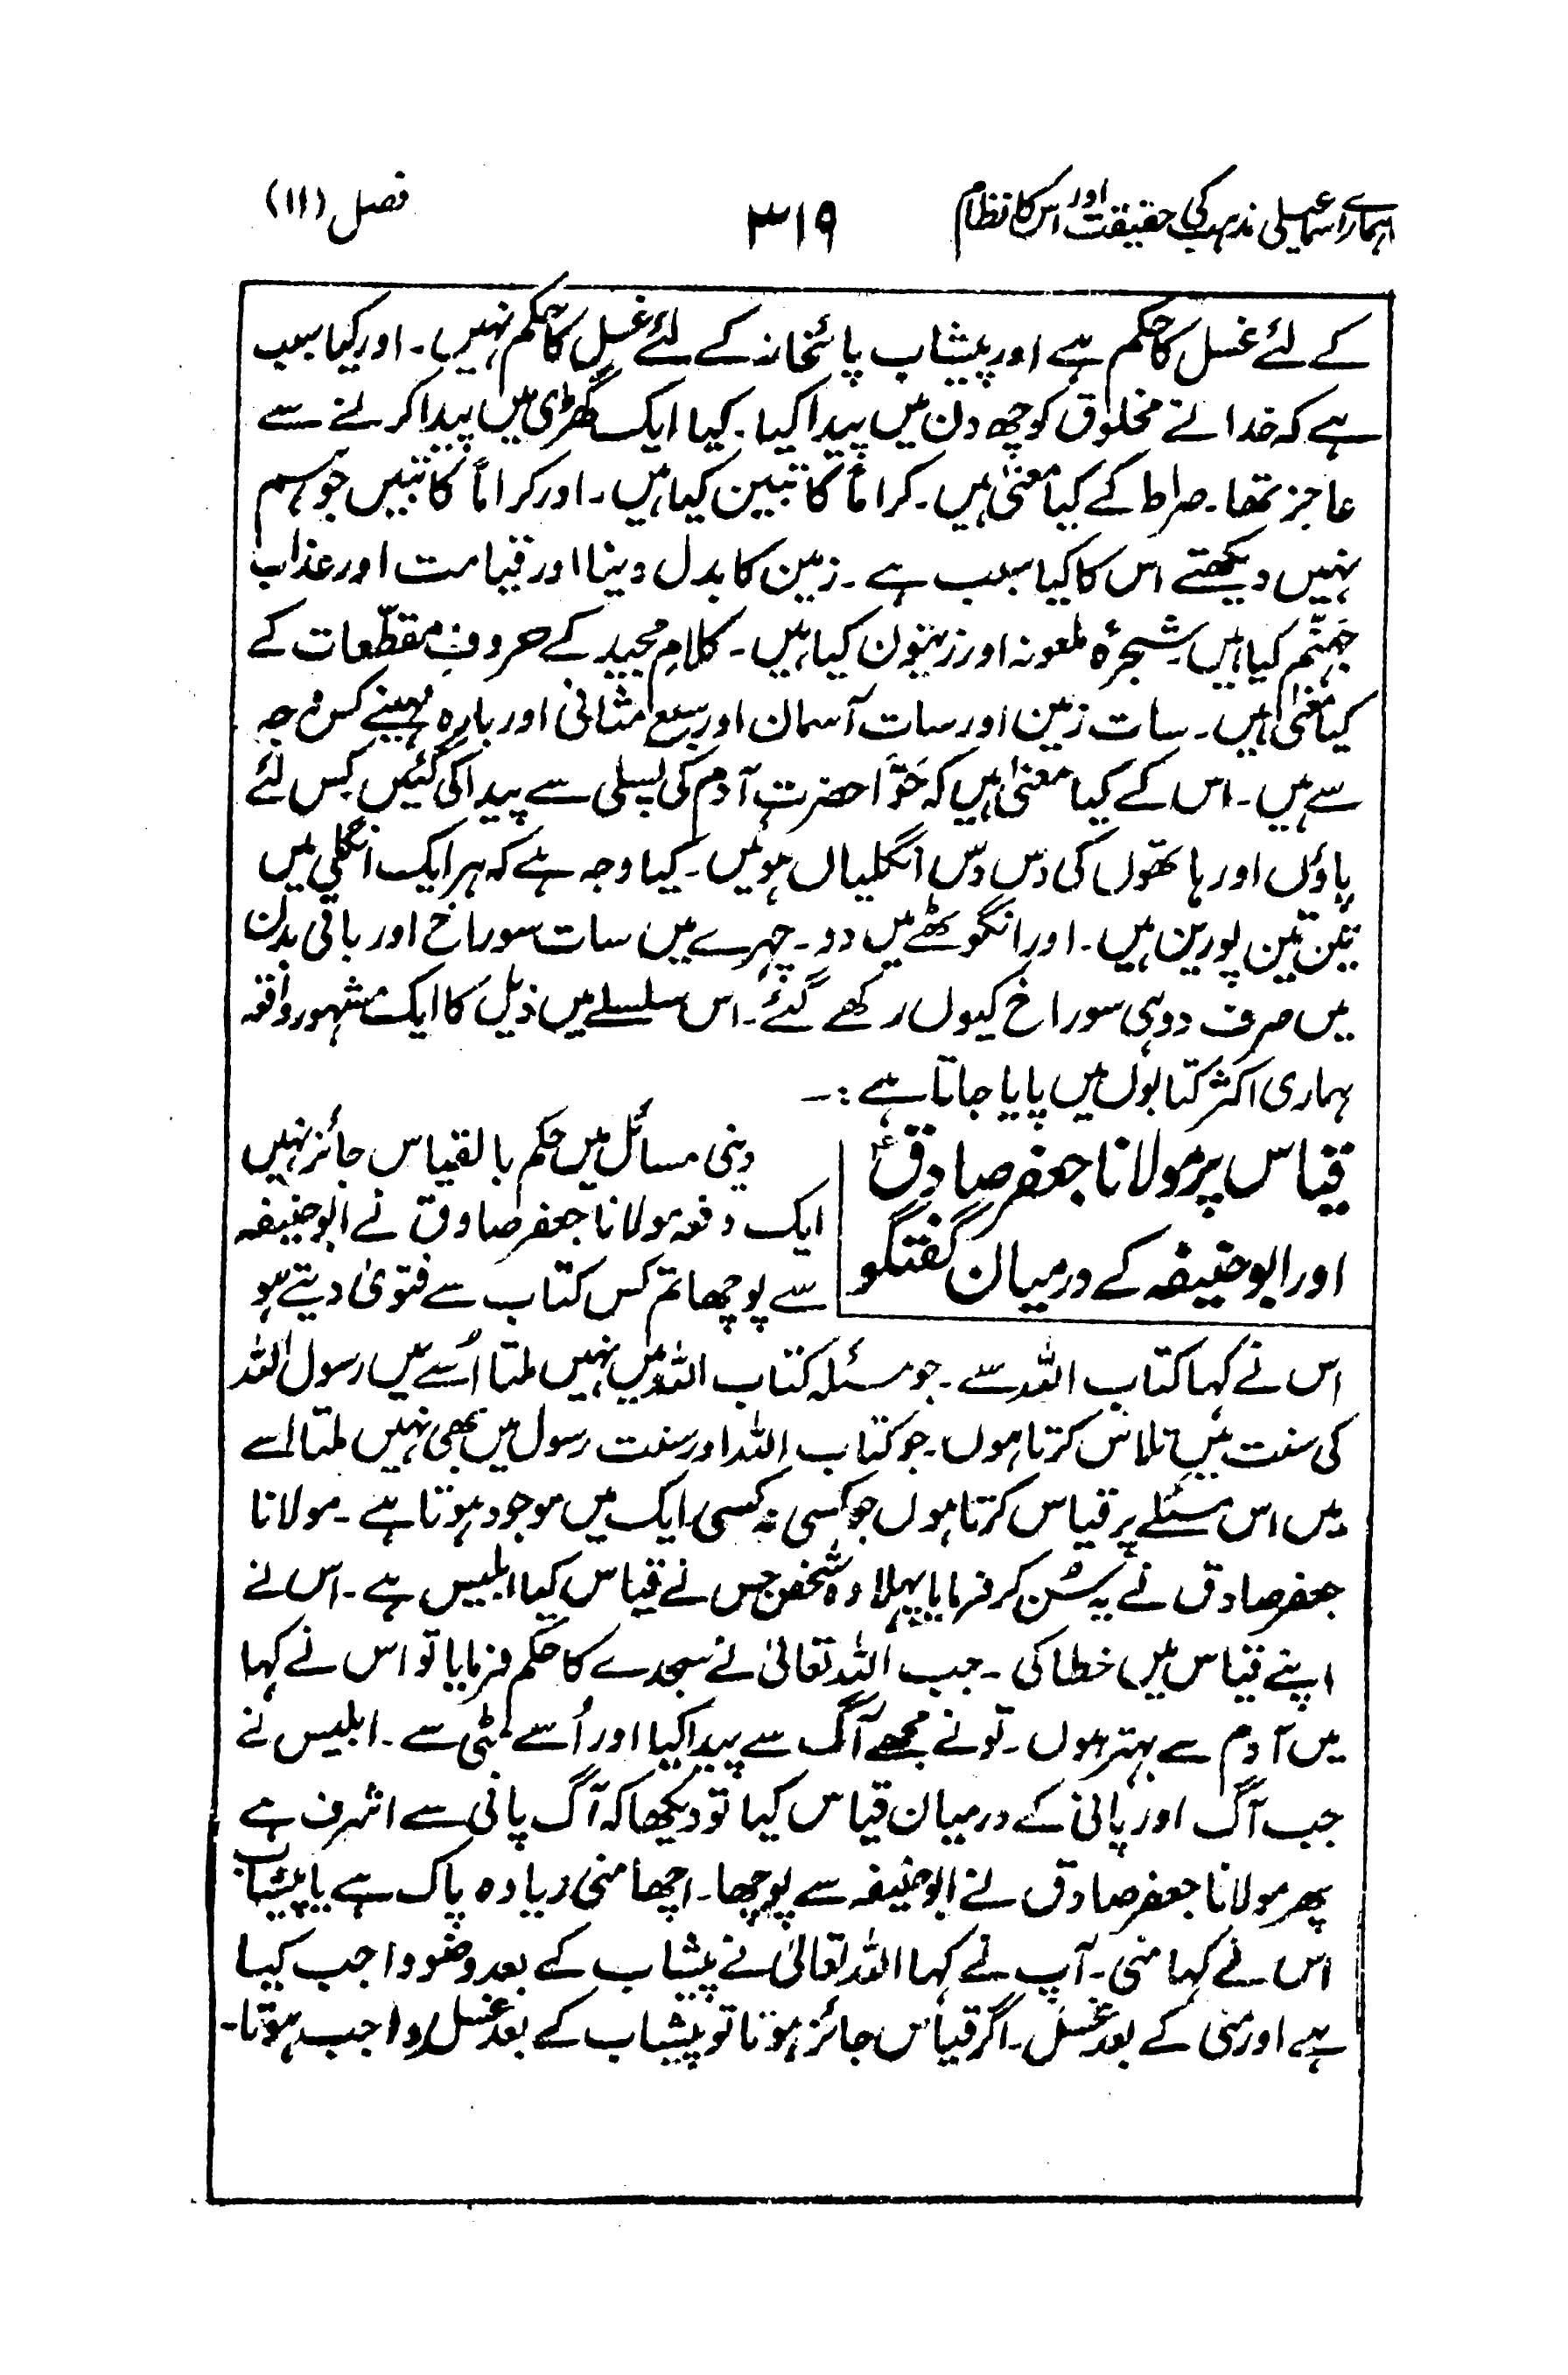 ہمارے اسماعیلی مذہب کی حقیقت اور اس کا نظام
۳۱۹
فصل (۱۱)
کے لئے غسل کا حکم ہے اور پیشاب پائخانہ کے لئے غسل کا حکم نہیں۔ اور کیا سبب
ہے کہ خدا نے مخلوق کو چھ دن میں پیدا کیا۔ کیا ایک گھڑی میں پیدا کرنے سے
عاجز تھا۔ صراط کے کیا معنیٰ ہیں۔ کراماً کاتبین کیا ہیں۔ اور کراماً کاتبیں جو ہم
نہیں دیکھتے اس کا کیا سبب ہے۔ زمین کا بدل دینا اور قیامت اور عذاب
جہنّم کیا ہیں۔ شجرۂ ملعونہ اور زیتون کیا ہیں۔ کلامِ مجید کے حروفِ مقطّعات کے
کیا معنیٰ ہیں۔ سات زمین اور سات آسمان اور سبع مثانی اور بارہ مہینے کس وجہ
سے ہیں۔ اس کے کیا معنیٰ ہیں کہ حَوّا حضرت آدم کی پسلی سے پیدا کی گئیں کس لئے
پاؤں اور ہاتھوں کی دس دس انگلیاں ہوئیں۔ کیا وجہ ہے کہ ہر ایک انگلی میں
تین تین پورین ہیں۔ اور انگوٹھے میں دو۔ چہرے میں سات سوراخ اور باقی بدن
میں صرف دو ہی سوراخ کیوں رکھے گئے۔ اس سلسلے میں ذیل کا ایک مشہور واقعہ
ہماری اکثر کتابوں میں پایا جاتا ہے :۔
قیاس پر مولانا جعفر صادقؑ
اور ابوحنیفہ کے درمیان گفتگو
دینی مسائل میں حکم بالقیاس جائز نہیں
ایک دفعہ مولانا جعفر صادق نے ابوحنیفہ
سے پوچھا تم کس کتاب سے فتویٰ دیتے ہو
اس نے کہا کتاب اللہ سے۔ جو مسئلہ کتاب اللہ میں نہیں ملتا اُسے میں رسول اللہ
کی سنت میں تلاش کرتا ہوں۔ جو کتاب اللہ اور سنت رسول میں بھی نہیں ملتا اسے
میں اس مسئلے پر قیاس کرتا ہوں جو کسی نہ کسی ایک میں موجود ہوتا ہے۔ مولانا
جعفر صادق نے یہ سُن کر فرمایا پہلا وہ شخص جس نے قیاس کیا ابلیس ہے۔ اس نے
اپنے قیاس میں خطا کی۔ جب اللہ تعالیٰ نے سجدے کا حکم فرمایا تو اس نے کہا
میں آدم سے بہتر ہوں۔ تو نے مجھے آگ سے پیدا کیا اور اُسے مٹی سے۔ ابلیس نے
جب آگ اور پانی کے درمیان قیاس کیا تو دیکھا کہ آگ پانی سے اشرف ہے
پھر مولانا جعفر صادق نے ابوحنیفہ سے پوچھا۔ اچھا منی زیادہ پاک ہے یا پیشاب
اس نے کہا منی۔ آپ نے کہا اللہ تعالیٰ نے پیشاب کے بعد وضو واجب کیا
ہے اور منی کے بعد غسل۔ اگر قیاس جائز ہوتا تو پیشاب کے بعد غسل واجب ہوتا۔